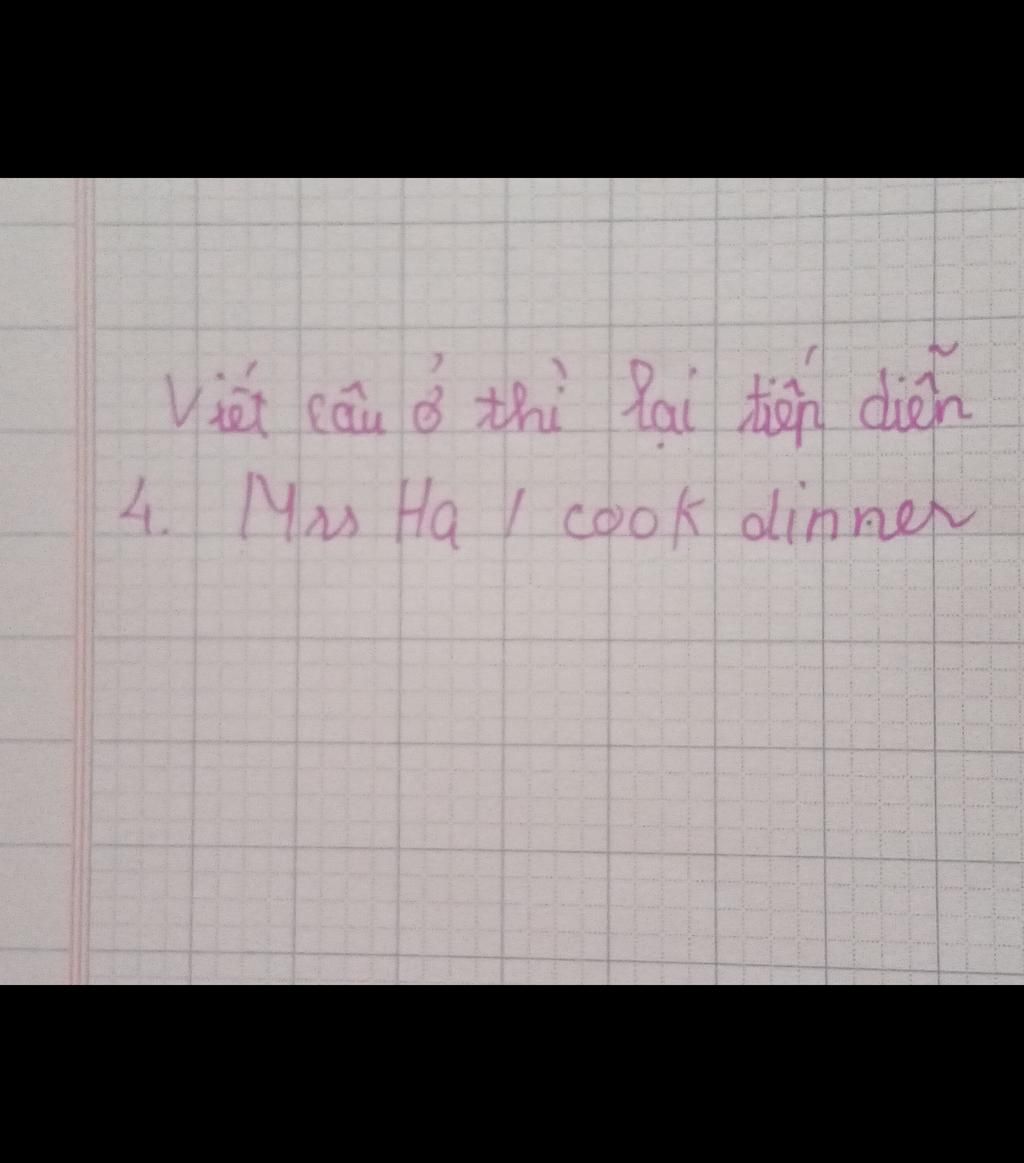 Viết câu ở thì lại tiếp diễn
4. Mrs Ha / cook dinner